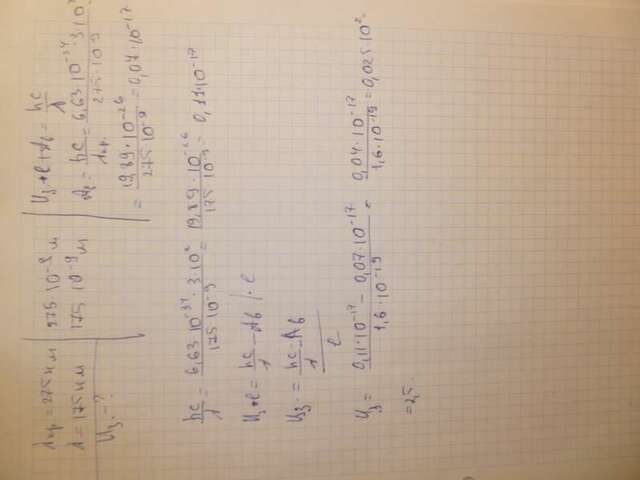 λкр = 275 нм | 275 10⁻⁹ м | Uз • e + Aв = hc/λ
λ = 175 нм | 175 10⁻⁹ м | Aв = hc/λкр. = 6,63 10⁻³⁴ · 3 10⁸ / 275 10⁻⁹ =
Uз - ?
= 19,89 · 10⁻²⁶ / 275 10⁻⁹ = 0,07 · 10⁻¹⁷
hc/λ = 6,63 10⁻³⁴ · 3 · 10⁸ / 175 10⁻⁹ = 19,89 · 10⁻²⁶ / 175 10⁻⁹ = 0,11 · 10⁻¹⁷
Uз • e = hc/λ - Aв / · e
Uз = hc/λ - Aв / e
Uз = 0,11 · 10⁻¹⁷ - 0,07 · 10⁻¹⁷ / 1,6 · 10⁻¹⁹ = 0,04 · 10⁻¹⁷ / 1,6 · 10⁻¹⁹ = 0,025 10²
= 2,5.